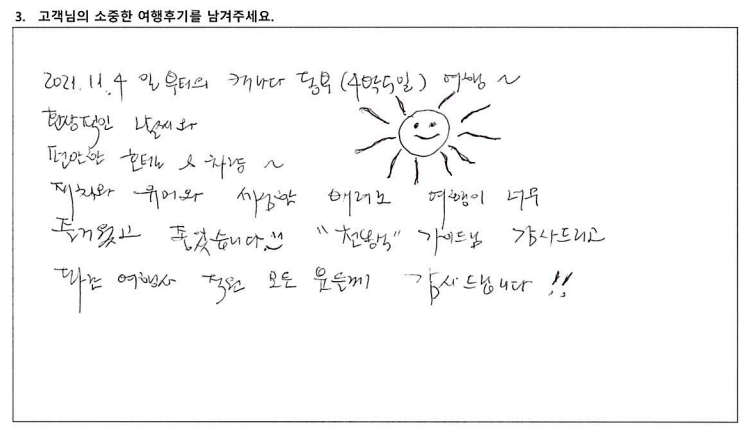 3. 고객님의 소중한 여행후기를 남겨주세요.
2021.11.4 일부터의 캐나다 동부 (4박5일) 여행 ~
환장적인 날씨와
편안한 호텔 & 차량 ~
재치와 유머와 세심한 배려로 여행이 너무
즐거웠고 좋았습니다!! " " 가이드님 감사드리고
여행사 직원 모든 분들께 감사드립니다 !!